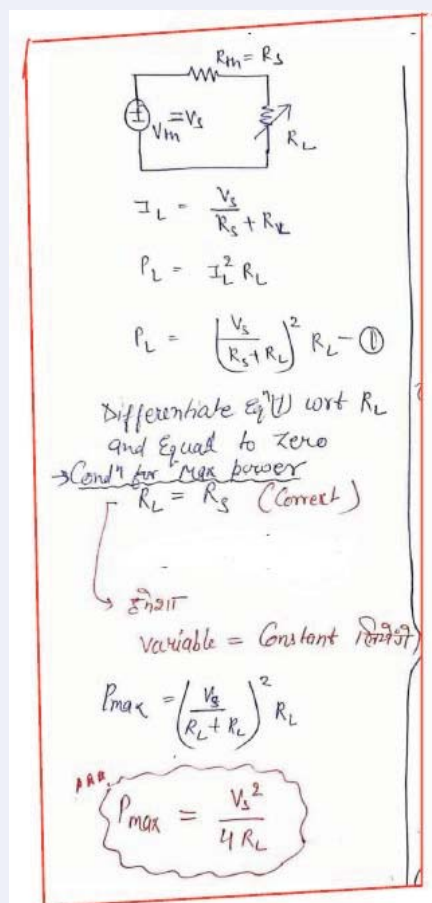 Rm = Rs
Vm = Vs
RL
IL = Vs / (Rs + RL)
PL = IL² RL
PL = (Vs / (Rs + RL))² RL – ①
Differentiate Eqⁿ(1) wrt RL
and Equal to Zero
→ Condⁿ for Max power
RL = Rs (Correct)
हमेशा
variable = Constant लिखेंगे
Pmax = (Vs / (RL + RL))² RL
Pmax = Vs² / 4RL